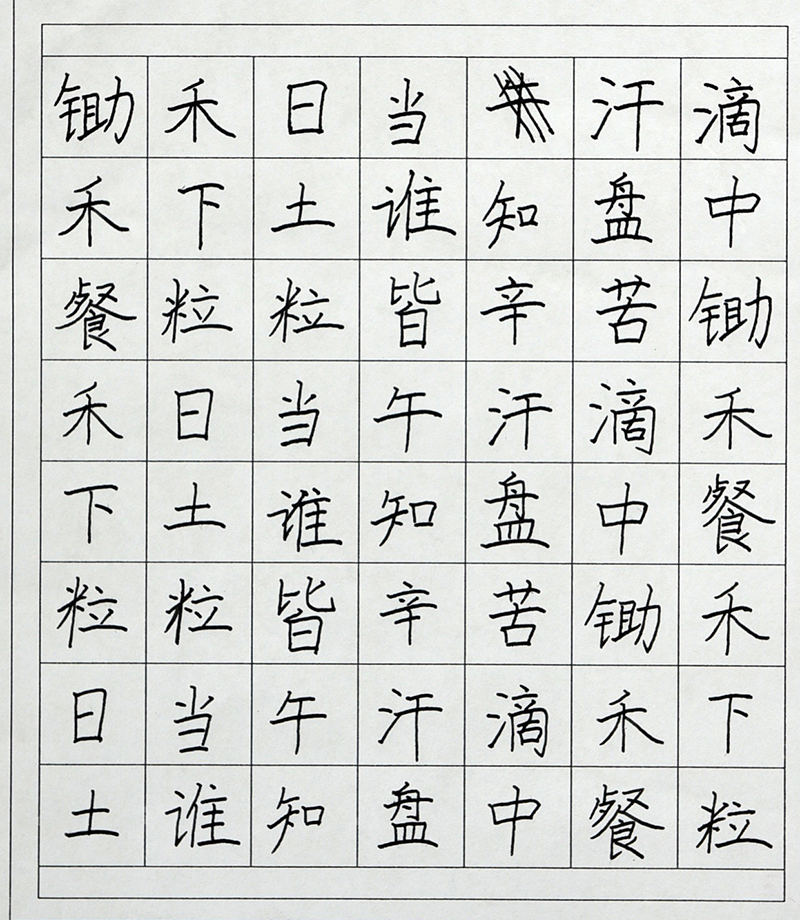 锄禾日当汗滴
禾下土谁知盘中
餐粒粒皆辛苦锄
禾日当午汗滴禾
下土谁知盘中餐
粒粒皆辛苦锄禾
日当午汗滴禾下
土谁知盘中餐粒